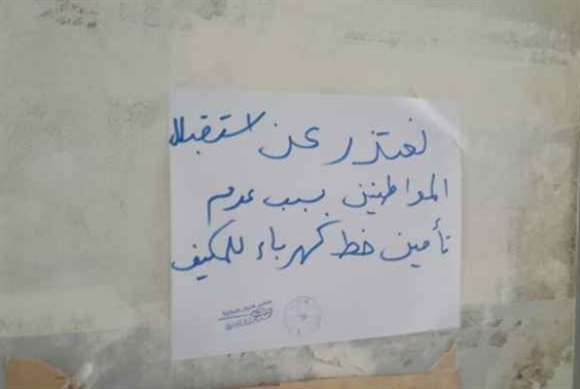 نعتذر عن استقبال
المواطنين بسبب عدم
تأمين خط كهرباء للمكيف